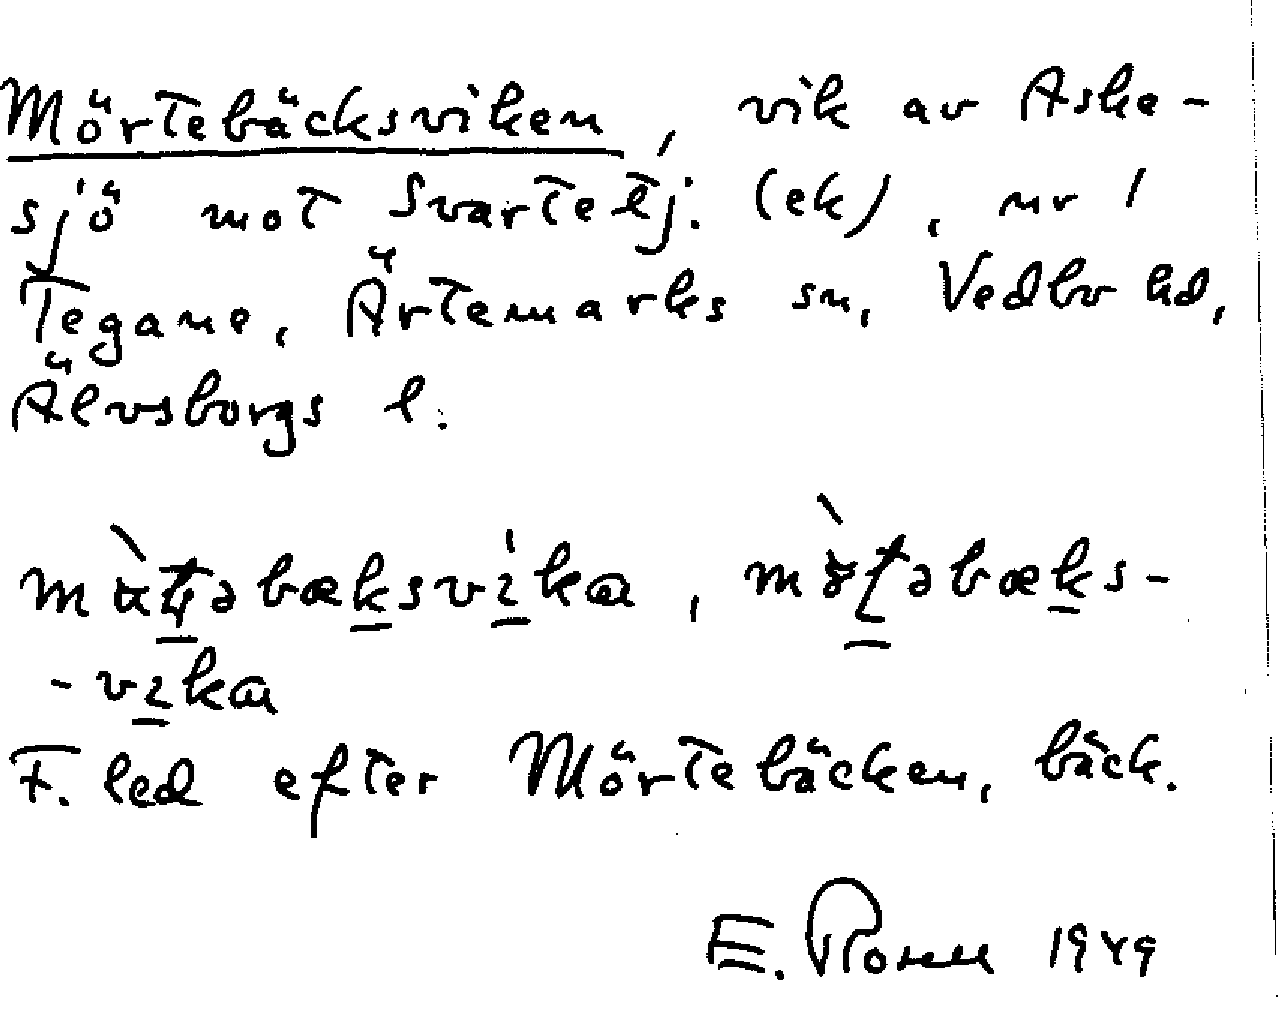 Mörtebäcksviken, vik av Aske-
sjö mot Svartetj. (ek), nr 1
Tegane, Ärtemarks sn, Vedbo hd,
Älvsborgs l.
-vika
F. led efter Mörtebäcken, bäck.
E. Rosell 1949